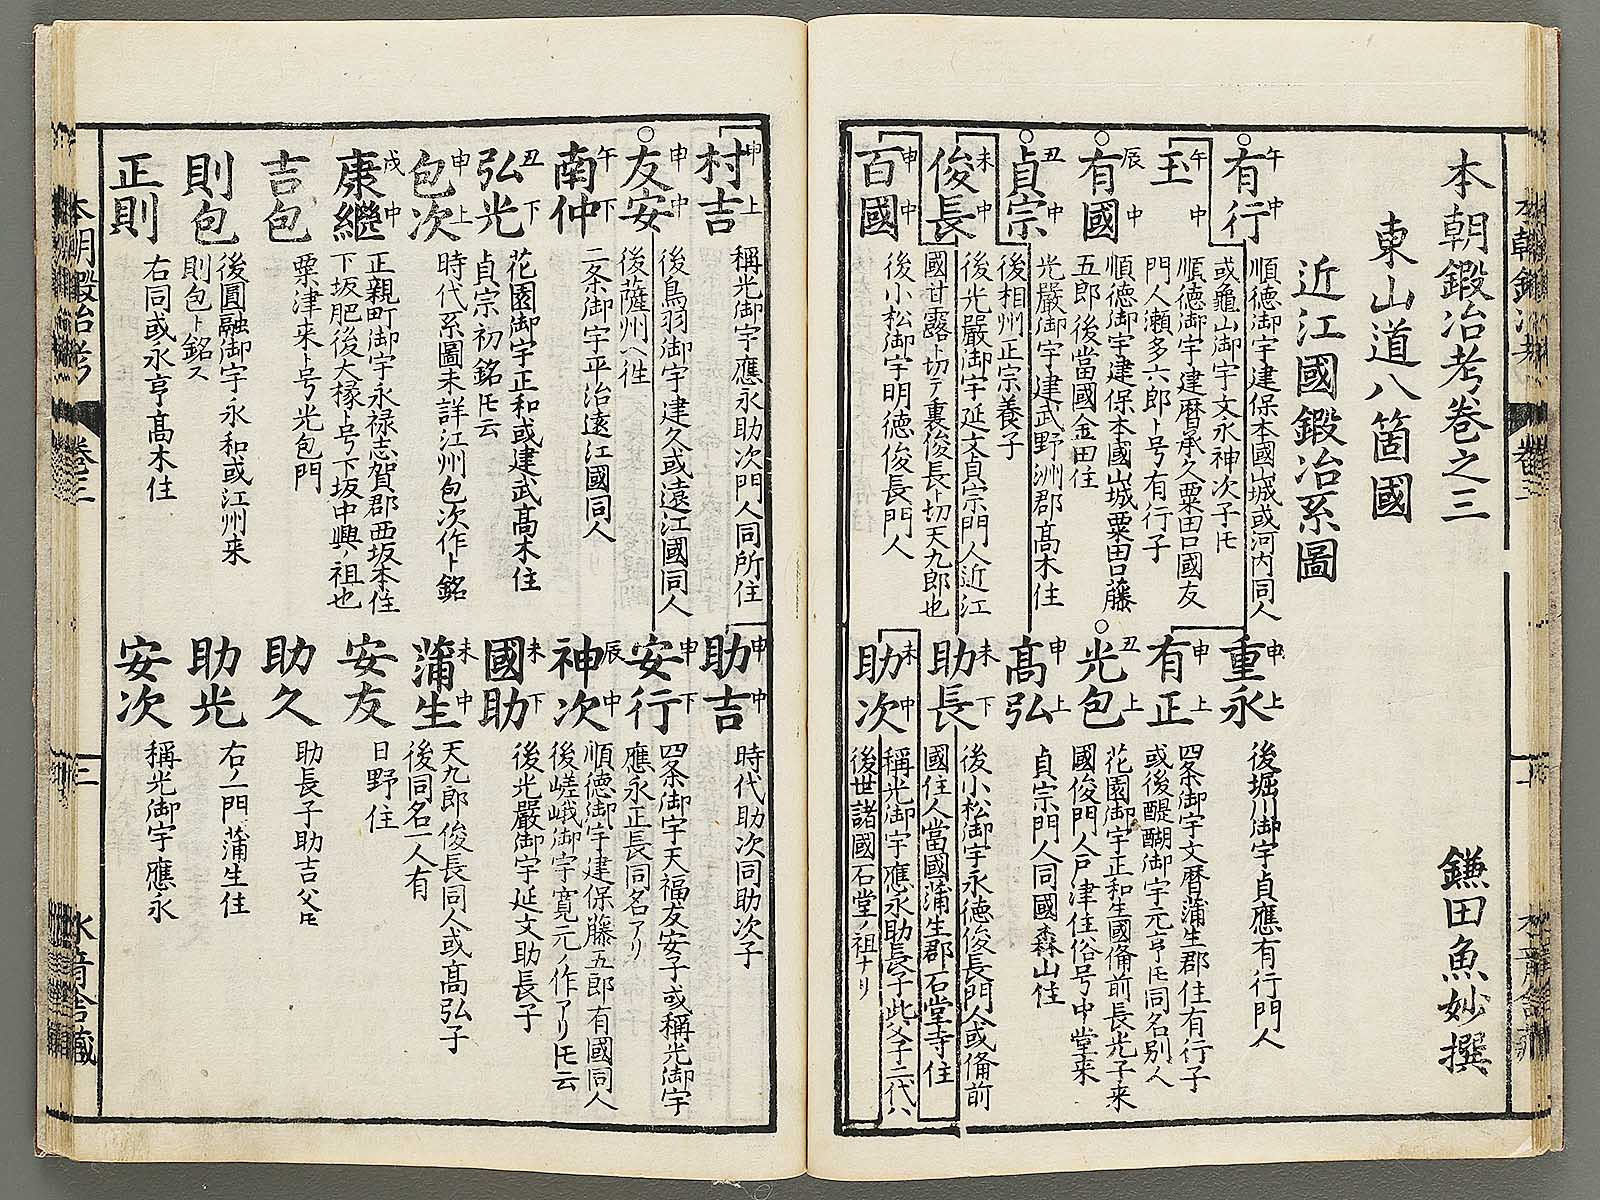 本朝鍛冶考巻之三
鎌田魚妙撰
東山道八箇國
近江國鍛冶系圖
午中
有行
順徳御宇建保本國山城或河内同人
或龜山御宇文永神次子トモ
午中
王
順徳御宇建暦承久粟田口國友
門人瀬多六郎ト号有行子
辰中
有國
順徳御宇建保本國山城粟田口藤
五郎後當國金田住
丑中
貞宗
光嚴御宇建武野洲郡髙木住
後相州正宗養子
未中
俊長
後光嚴御宇延文貞宗門人近江
國甘露ト切テ裏俊長ト切天九郎也
申中
百國
後小松御宇明徳俊長門人
申上
重永
後堀川御宇貞應有行門人
申上
有正
四条御宇文暦蒲生郡住有行子
或後醍醐御宇元亨トモ同名別人
丑上
光包
花園御宇正和生國備前長光子来
國俊門人戸津住俗号中堂来
申上
髙弘
貞宗門人同國森山住
未下
助長
後小松御宇永徳俊長門人或備前
國住人當國蒲生郡石堂寺住
未中
助次
稱光御宇應永助長子此父子二代ハ
後世諸國石堂ノ祖ナリ
申上
村吉
稱光御宇應永助次門人同所住
申中
友安
後鳥羽御宇建久或遠江國同人
後薩州ヘ往
午下
南仲
二条御宇平治遠江國同人
丑下
弘光
花園御宇正和或建武髙木住
貞宗初銘トモ云
申上
包次
時代系圖未詳江州包次作ト銘
戌中
康繼
正親町御宇永禄志賀郡西坂本住
下坂肥後大掾ト号下坂中興ノ祖也
吉包
粟津来ト号光包門
則包
後圓融御宇永和或江州来
則包ト銘ス
正則
右同或永亨髙木住
申中
助吉
時代助次同助次子
申下
安行
四条御宇天福友安子或稱光御宇
應永正長同名アリ
辰中
神次
順徳御宇建保藤五郎有國同人
後嵯峨御宇寛元ノ作アリトモ云
未下
國助
後光嚴御宇延文助長子
未中
蒲生
天九郎俊長同人或髙弘子
後同名一人有
安友
日野住
助久
助長子助吉父トモ
助光
右ノ一門蒲生住
安次
稱光御宇應永
本朝鍛冶考
巻三
三